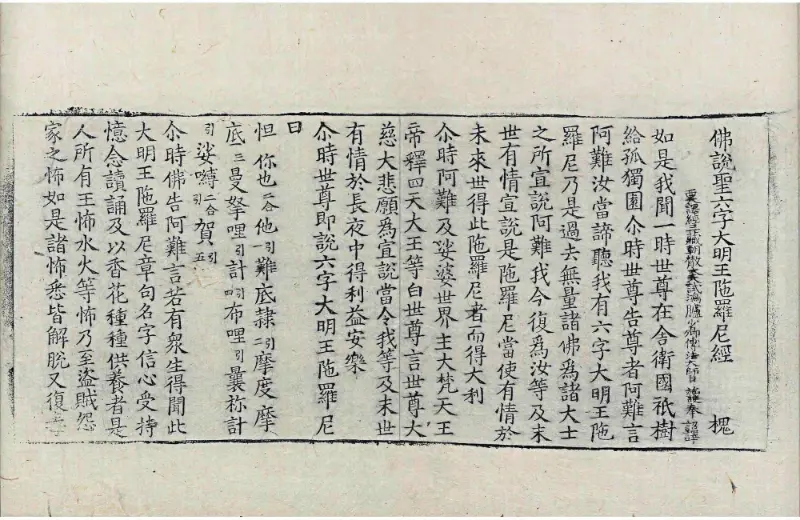 佛說聖六字大明王陁羅尼經 槐
西天譯經三藏朝散大夫試鴻臚少卿傳法大師臣施護奉 詔譯
如是我聞一時世尊在舍衛國祇樹
給孤獨園尒時世尊告尊者阿難言
阿難汝當諦聽我有六字大明王陁
羅尼乃是過去無量諸佛為諸大士
之所宣說阿難我今復為汝等及末
世有情宜說是陁羅尼當使有情於
未來世得此陁羅尼者而得大利
尒時阿難及娑婆世界主大梵天王
帝釋四天大王等白世尊言世尊大
慈大悲願為宣說當令我等及末世
有情於長夜中得利益安樂
尒時世尊即說六字大明王陁羅尼
曰
怛你也二合他一難底隸二摩度摩
底三曼拏哩引計四布哩引曩祢計
引娑嚩二合引賀引五
尒時佛告阿難言若有衆生得聞此
大明王陁羅尼章句名字信心受持
憶念讀誦及以香花種種供養者是
人所有王怖水火等怖乃至盜賊怨
家之怖如是諸怖悉皆解脫又復